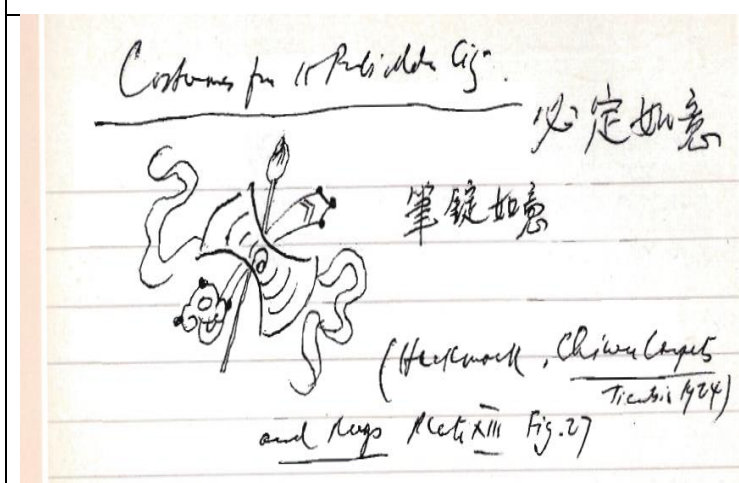 Costumes fr 11 Forbidden City.
必定如意
筆錠如意
(Hackmack, Chinese Carpets
Tientsin 1924)
and Rugs Plate XIII Fig. 27